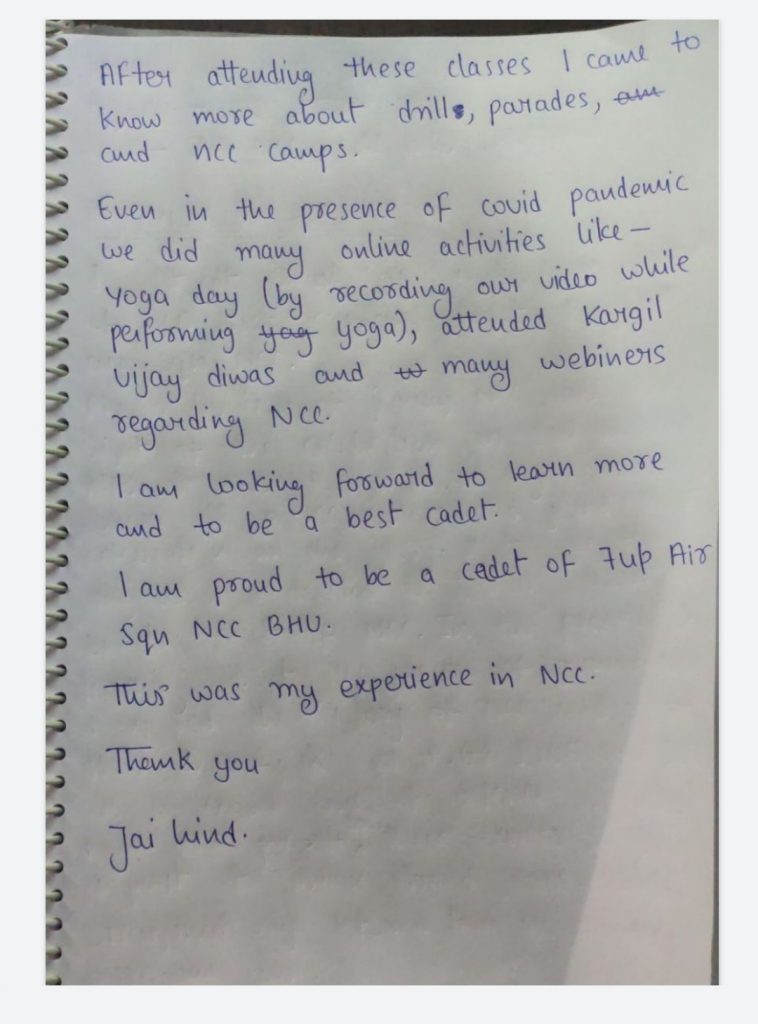 After attending these classes I came to
know more about drills, parades, am
and ncc camps.
Even in the presence of covid pandemic
we did many online activities like –
yoga day (by recording our video while
performing yag yoga), attended Kargil
vijay diwas and w many webiners
regarding NCC.
I am looking forward to learn more
and to be a best cadet.
I am proud to be a cadet of 7up Air
Sqn NCC BHU.
This was my experience in NCC.
Thank you
Jai hind.